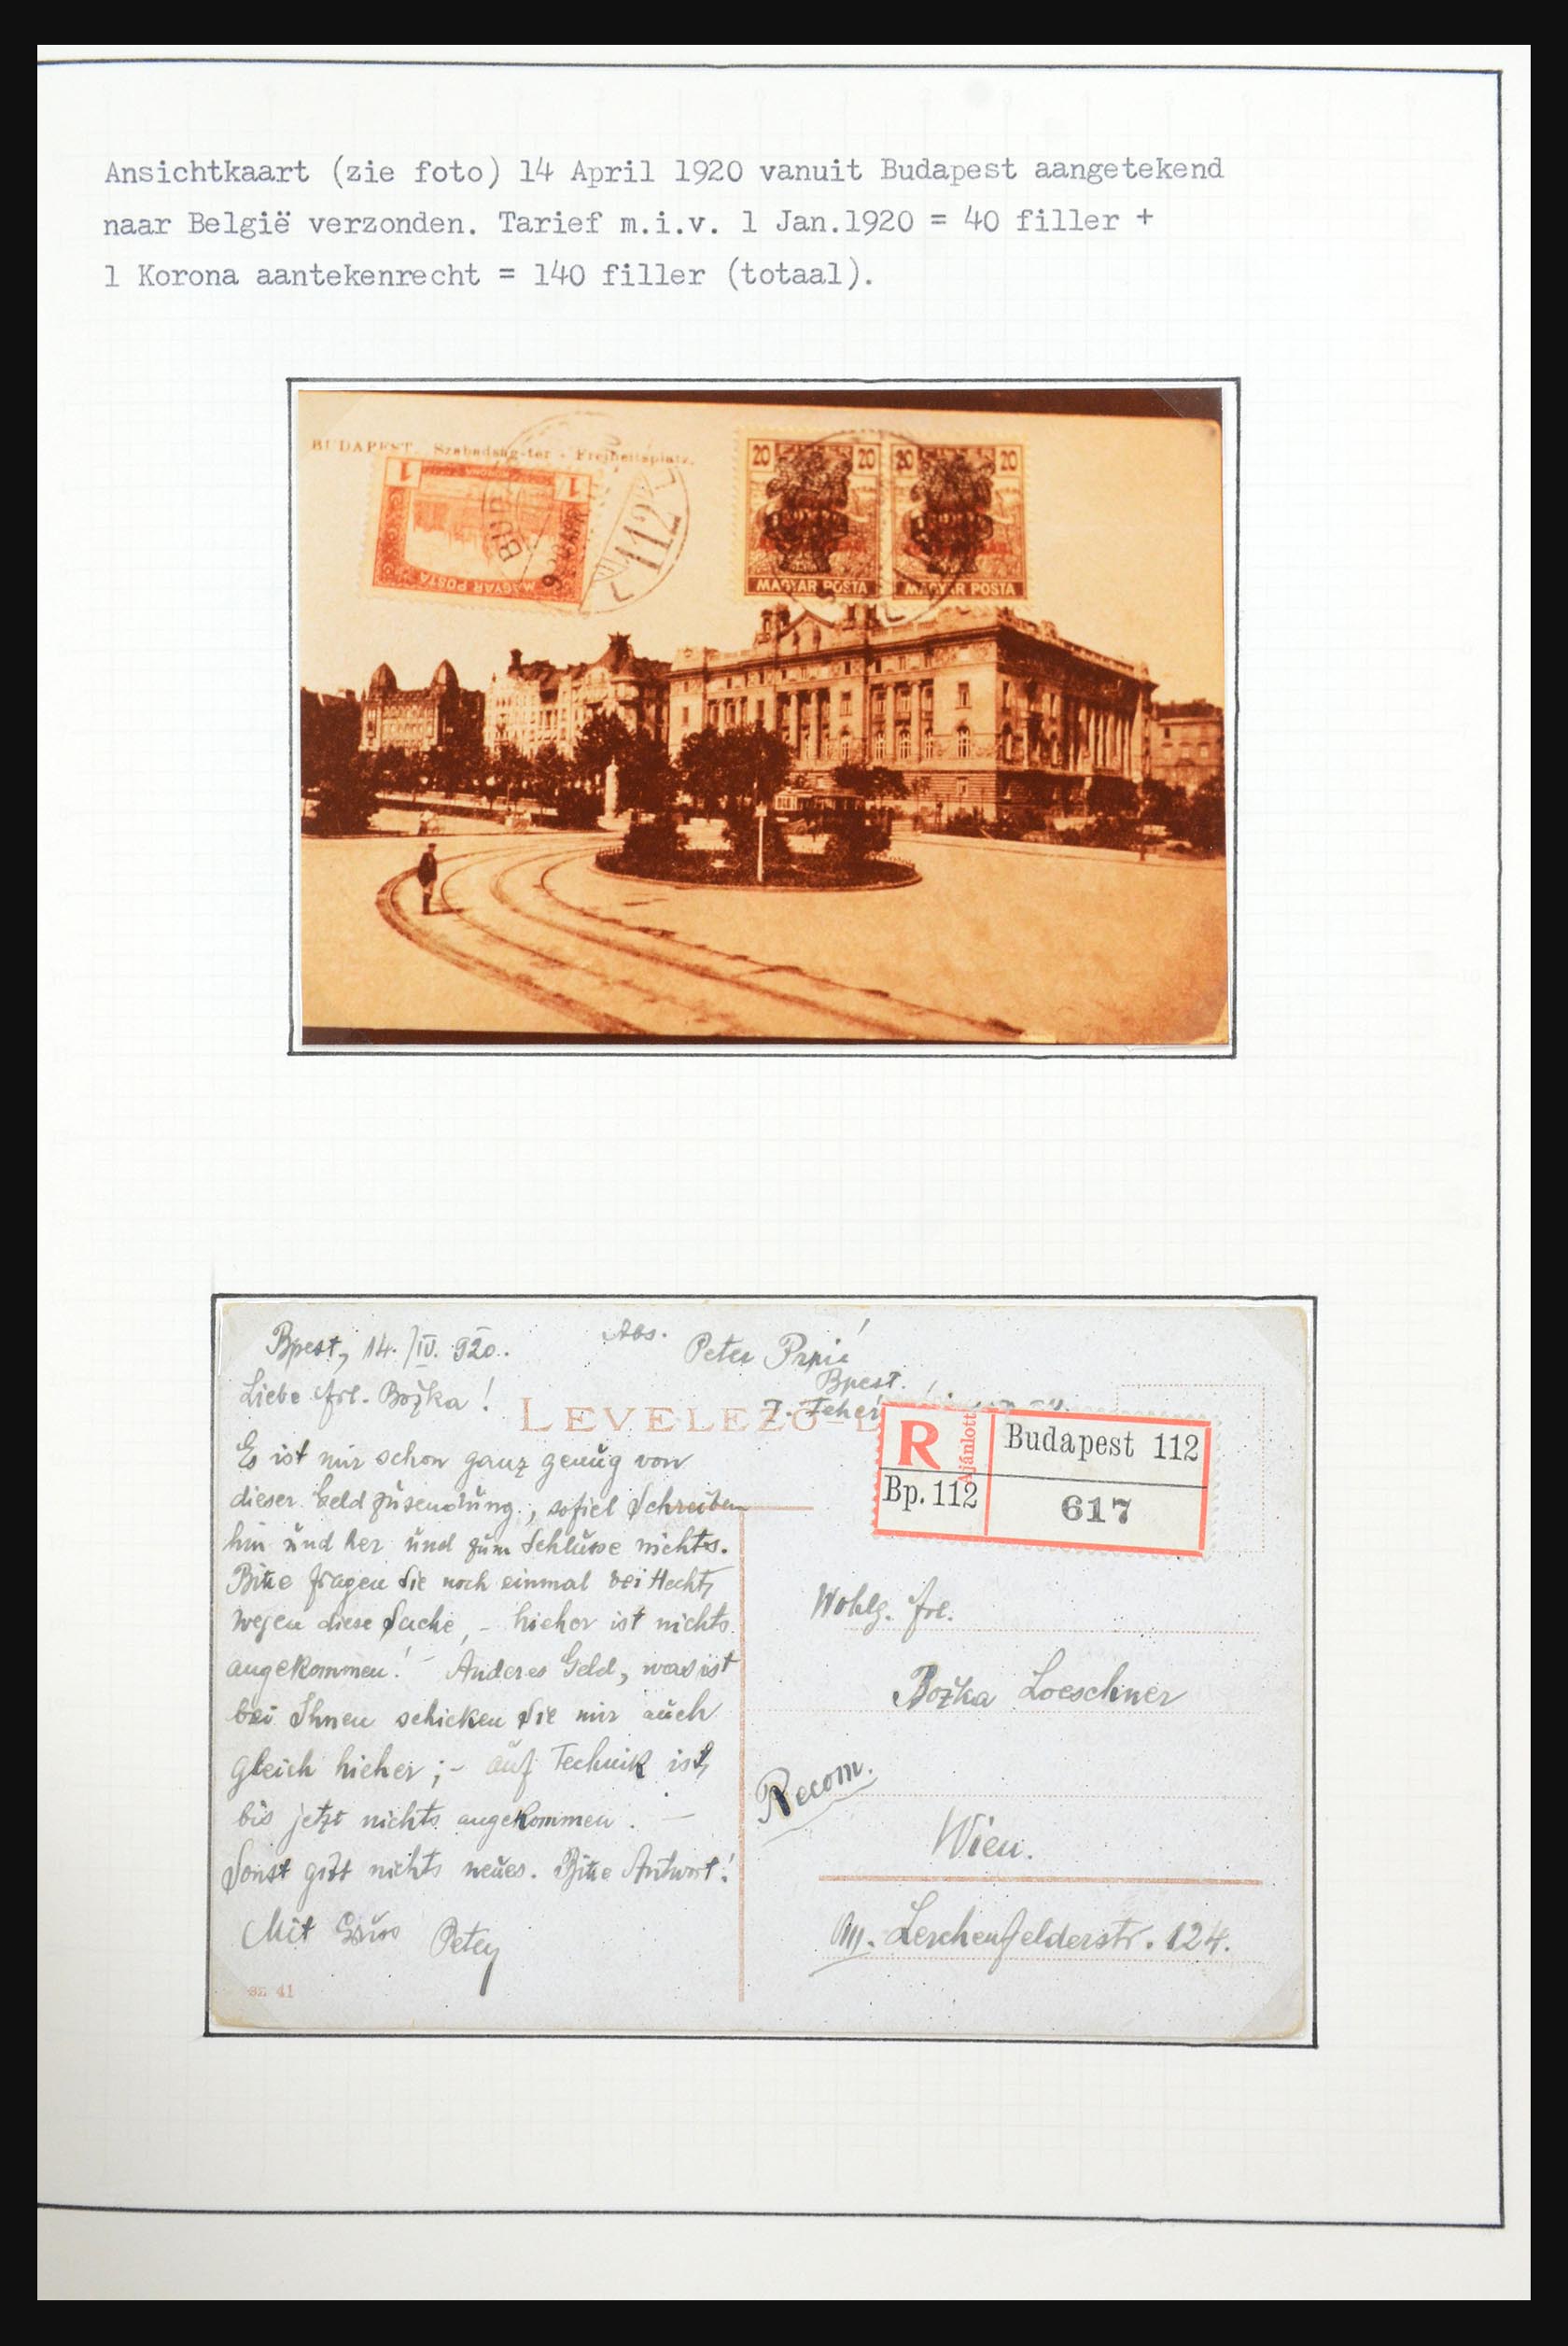 Ansichtkaart (zie foto) 14 April 1920 vanuit Budapest aangetekend
naar België verzonden. Tarief m.i.v. 1 Jan.1920 = 40 filler +
1 Korona aantekenrecht = 140 filler (totaal).
BUDAPEST. Szabadság-tér - Freiheitsplatz.
1 1
MAGYAR POSTA
112
20 20
MAGYAR POSTA
20 20
MAGYAR POSTA
Bpest, 14./IV. 920.
Abs. Peter Prpić
Bpest.
Liebe Frl. Božka!
I. Fehér
LEVELEZŐ-L
R
Ajánlott
Budapest 112
Bp. 112
617
Es ist mir schon ganz genŭg von
dieser Geldzŭsendŭng, sofiel Schreiben
hin ŭnd her ŭnd zŭm Schlŭsse nichts.
Bitte fragen Sie noch einmal bei Hecht,
wegen diese Sache, - hieher ist nichts
angekommen! - Anderes Geld, was ist
bei Ihnen schicken Sie mir aŭch
gleich hieher; - aŭf Technik ist,
bis jetzt nichts angekommen. -
Sonst gibt nichts neŭes. Bitte Antwort!
Mit Grŭss Peter
41
Wohlg. Frl.
Božka Loeschner
Recom.
Wien.
Lerchenfelderstr. 124.